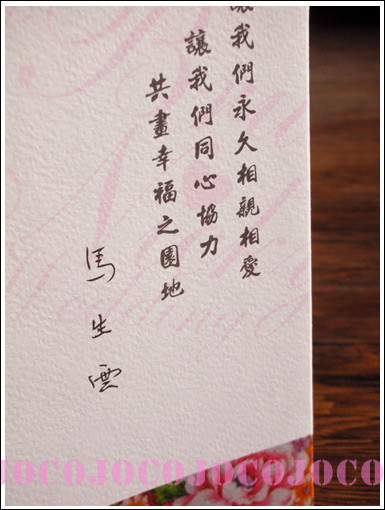 讓我們永久相親相愛
讓我們同心協力
共畫幸福之園地
馬生雲
JOCOJOCOJOCOJOCO